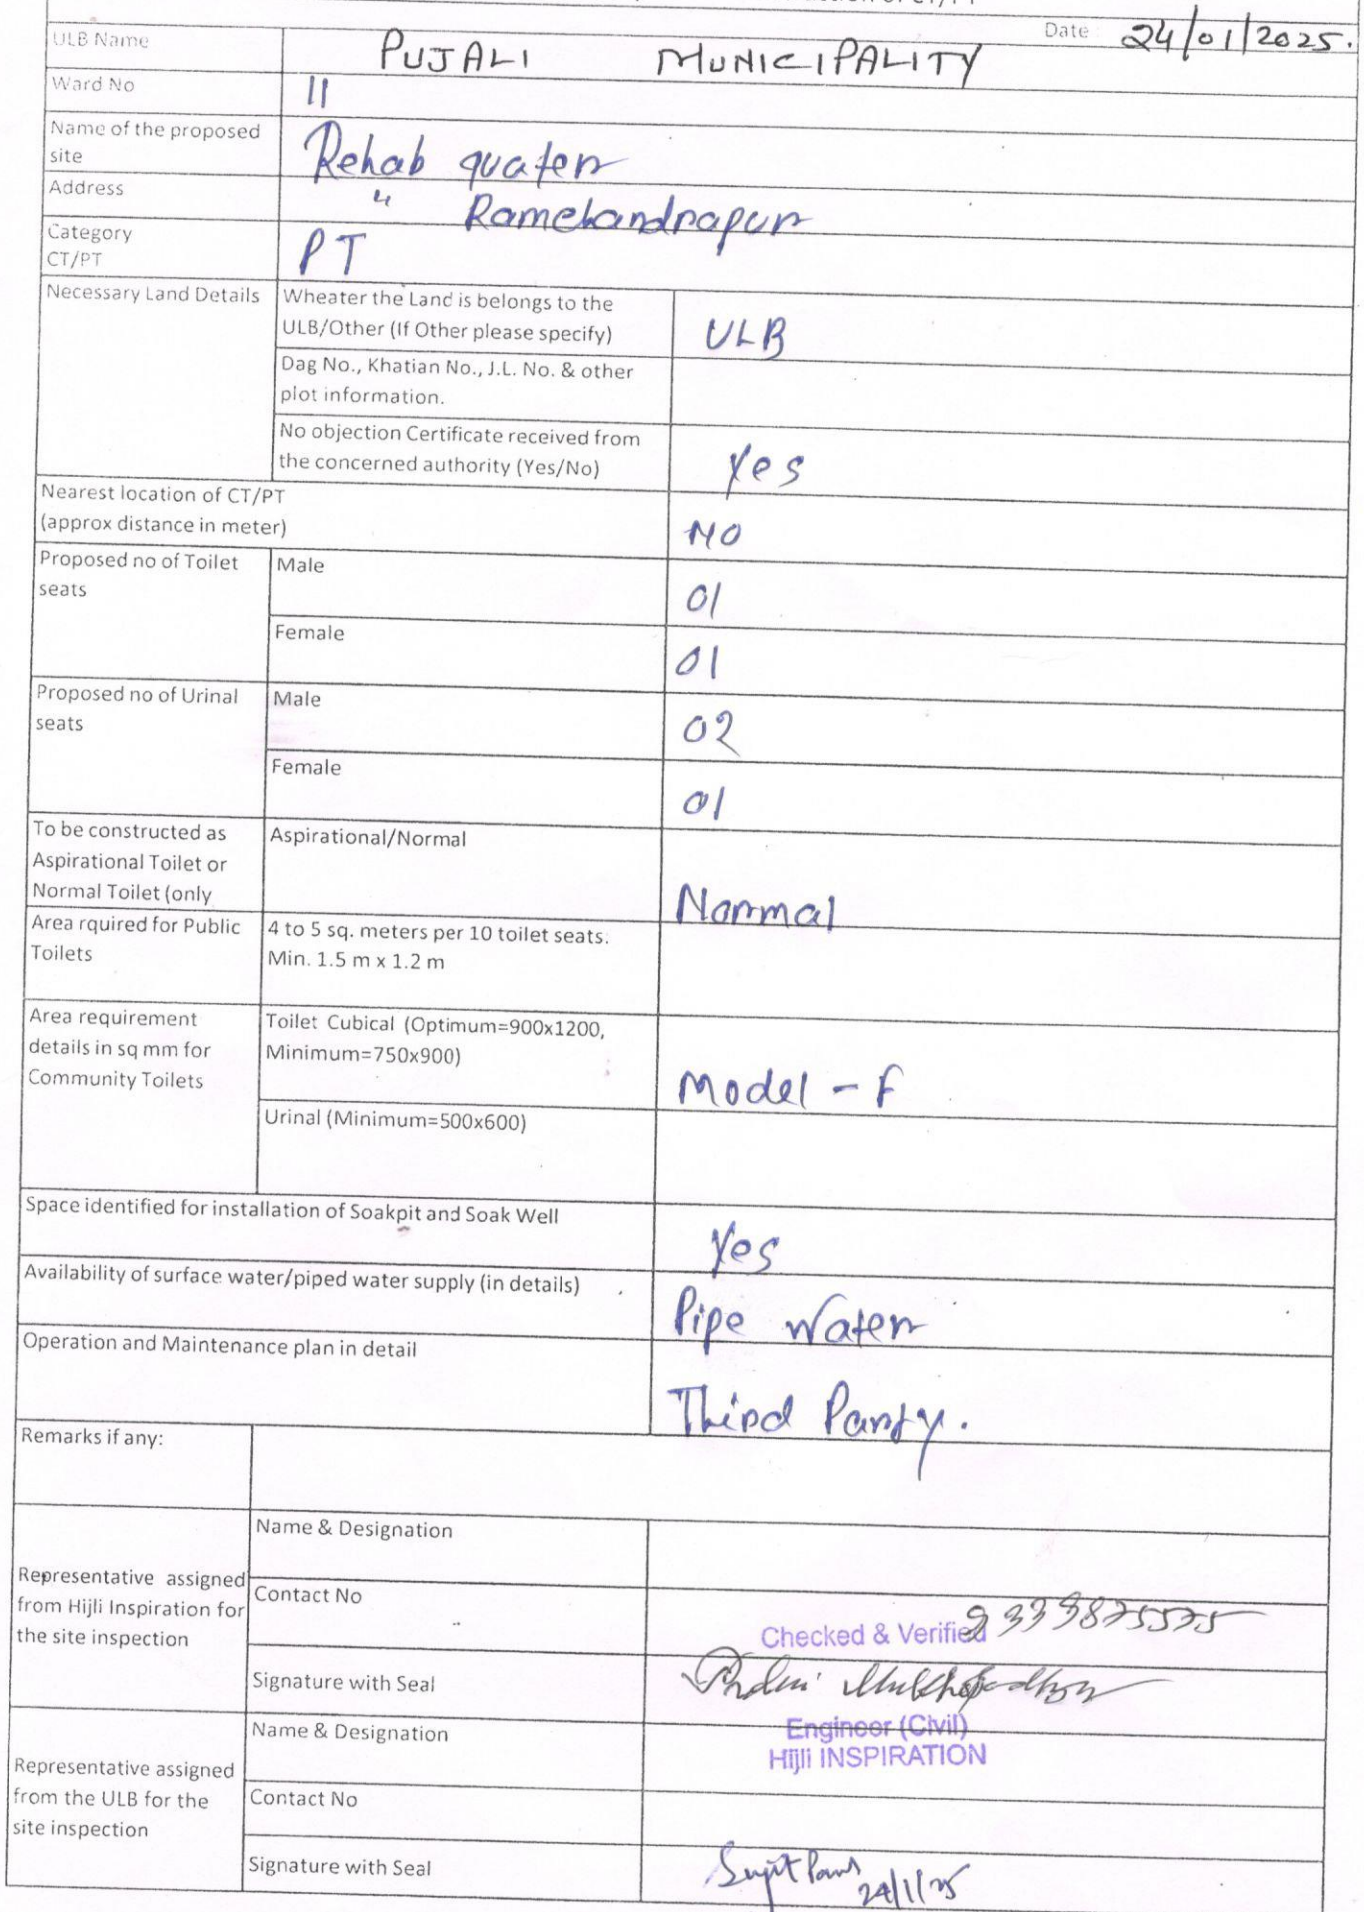 Date 24/01/2025.
ULB Name PUJALI MUNICIPALITY
Ward No 11
Name of the proposed
site Rehab quater
Address " Ramchandrapur
Category
CT/PT PT
Necessary Land Details Wheater the Land is belongs to the
ULB/Other (If Other please specify) ULB
Dag No., Khatian No., J.L. No. & other
plot information.
No objection Certificate received from
the concerned authority (Yes/No) Yes
Nearest location of CT/PT
(approx distance in meter) NO
Proposed no of Toilet
seats
Male 01
Female 01
Proposed no of Urinal
seats
Male 02
Female 01
To be constructed as
Aspirational Toilet or
Normal Toilet (only
Aspirational/Normal Normal
Area rquired for Public
Toilets
4 to 5 sq. meters per 10 toilet seats.
Min. 1.5 m x 1.2 m
Area requirement
details in sq mm for
Community Toilets
Toilet Cubical (Optimum=900x1200,
Minimum=750x900)
Model - F
Urinal (Minimum=500x600)
Space identified for installation of Soakpit and Soak Well Yes
Availability of surface water/piped water supply (in details) Pipe Water
Operation and Maintenance plan in detail Third Party.
Remarks if any:
Representative assigned
from Hijli Inspiration for
the site inspection
Name & Designation
Contact No 9333875575
Checked & Verified
Signature with Seal Mukhopadhyay
Engineer (Civil)
Hijli INSPIRATION
Representative assigned
from the ULB for the
site inspection
Name & Designation
Contact No
Signature with Seal Sujit
24/1/25